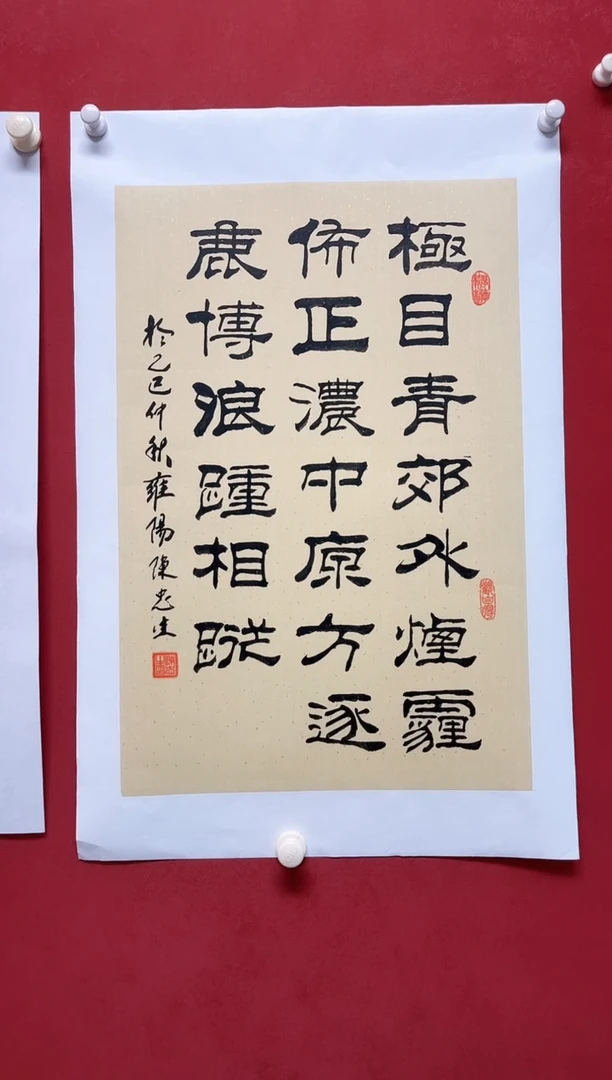 極目青郊外煙霾
佈正濃中原方逐
鹿博浪踵相蹤
於乙巳仲秋雍陽陳忠生